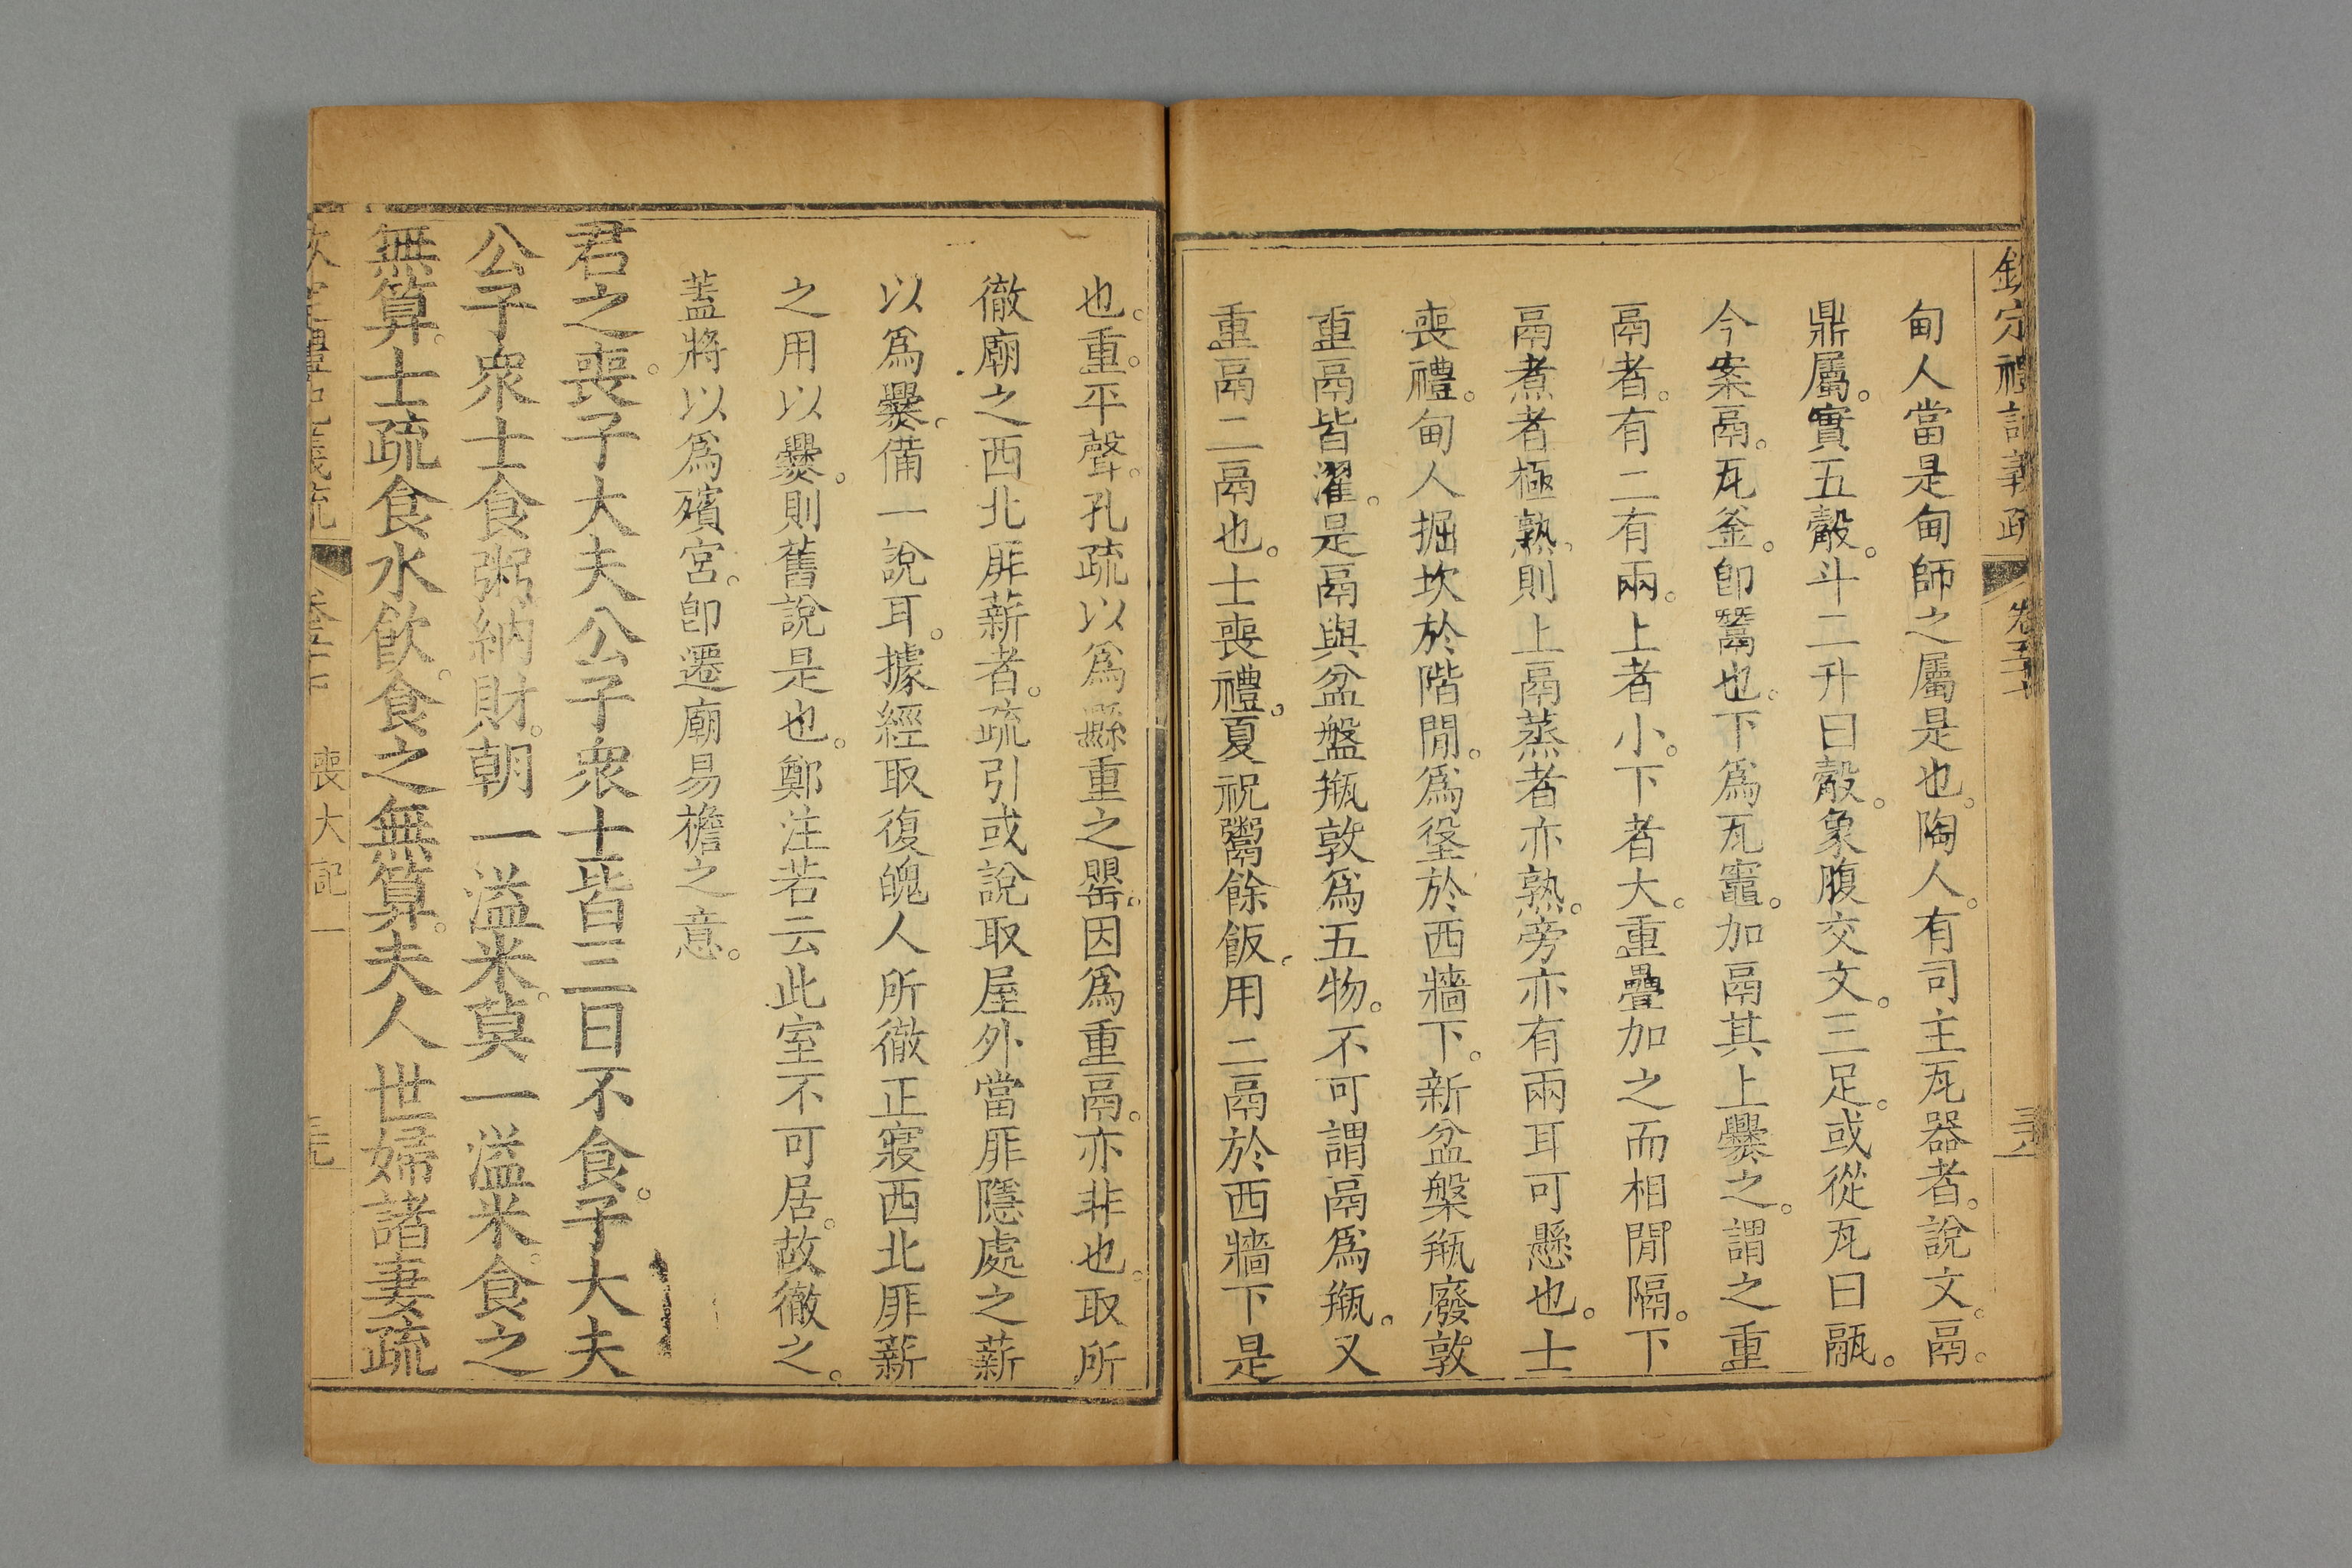 欽定禮記義疏 卷五十 三十八
甸人當是甸師之屬是也。陶人。有司主瓦器者。說文。鬲。
鼎屬。實五觳。斗二升曰觳。象腹交文。三足。或從瓦曰䰛。
今案鬲。瓦釜。卽鬵也。下爲瓦竈。加鬲其上爨之。謂之重
鬲者。有二有兩。上者小。下者大。重疊加之而相閒隔。下
鬲煮者極熟。則上鬲蒸者亦熟。旁亦有兩耳可懸也。士
喪禮。甸人掘坎於階閒。爲垼於西牆下。新盆槃瓶廢敦
重鬲皆濯。是鬲與盆盤瓶敦爲五物。不可謂鬲爲瓶。又
重鬲二鬲也。士喪禮。夏祝鬻餘飯。用二鬲於西牆下是
也。重。平聲。孔疏以爲縣重之罌。因爲重鬲。亦非也。取所
徹廟之西北厞薪者。疏引或說取屋外當厞隱處之薪
以爲爨。備一說耳。據經取復魄人所徹正寢西北厞薪
之用以爨。則舊說是也。鄭注若云此室不可居。故徹之。
蓋將以爲殯宮。卽遷廟易檐之意。
君之喪。子大夫公子衆士皆三日不食。子大夫
公子衆士食粥納財。朝一溢米。莫一溢米。食之
無算。士疏食水飲。食之無算。夫人世婦諸妻疏
喪大記一